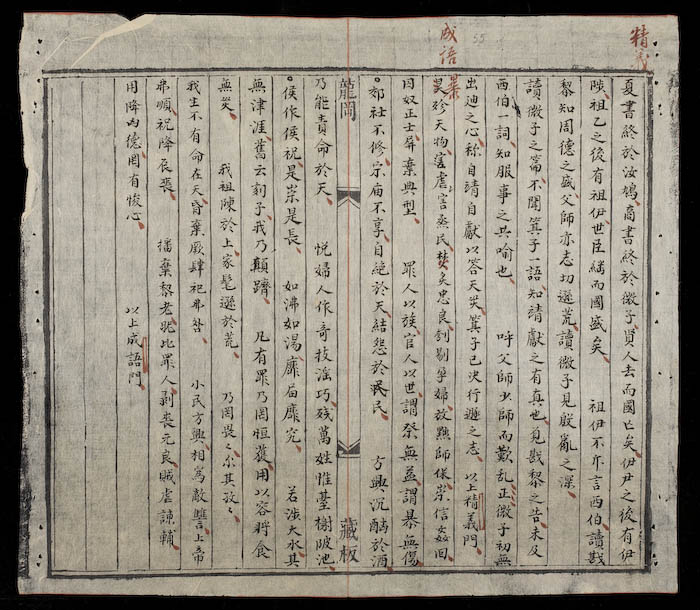 精義
成語
55
夏書終於汝鳩商書終於微子賢人去而國亡矣伊尹之後有伊
陟祖乙之後有祖伊世臣継而國盛矣 祖伊不斥言西伯讀戡
黎知周德之盛父師亦志切遜荒讀微子見殷亂之深
讀微子之篇不聞箕子一語知靖獻之有真也覓戡黎之告未及
西伯一詞知服事之共喻也 呼父師少師而歎乱正微子初無
出廸之心称自靖自獻以答天災箕子已决行遜之志 以上精義門
暴殄天物害虐烝民焚炙忠良刳剔孕婦放黜師保崇信奸回
囚奴正士屏棄典型 罪人以族官人以世謂祭無益謂暴無傷
郊社不修宗庙不享自絶於天結怨於民 方興沉酗於酒
龍岡 藏板
乃能責命於天 悦婦人作奇技滛巧残萬姓惟臺榭陂池
侯作侯祝是崇是長 如沸如湯靡届靡究 若涉大水其
無津涯舊云刻子我乃顛隮 凡有罪乃罔恒獲用以容將食
無災 我祖陳於上家耄遜於荒 乃罔畏々咈其耇々
我生不有命在天昏棄厥肆祀弗答 小民方興相爲敵讐上帝
弗順祝降辰喪 播棄黎老昵比罪人剥喪元良賊虐諫輔
用降丙德罔有悛心 以上成語門